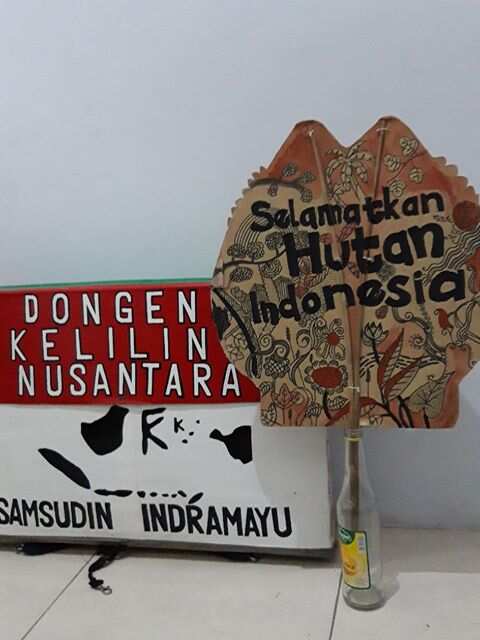 DONGEN
KELILIN
NUSANTARA
SAMSUDIN INDRAMAYU
Selamatkan
Hutan
Indonesia